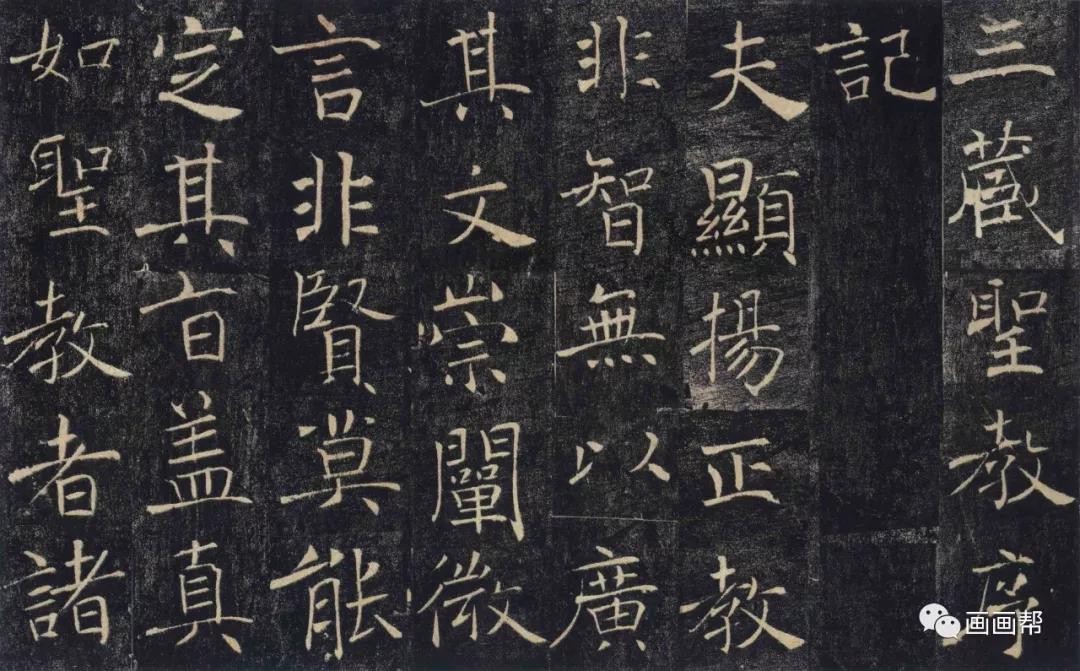 三藏聖教序
記
夫顯揚正教
非智無以廣
其文崇闡微
言非賢莫能
定其旨盖真
如聖教者諸
画画帮